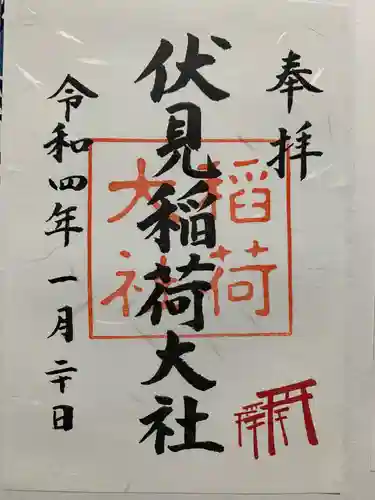 奉拝
伏見稲荷大社
稲荷
大社
令和四年一月二十日